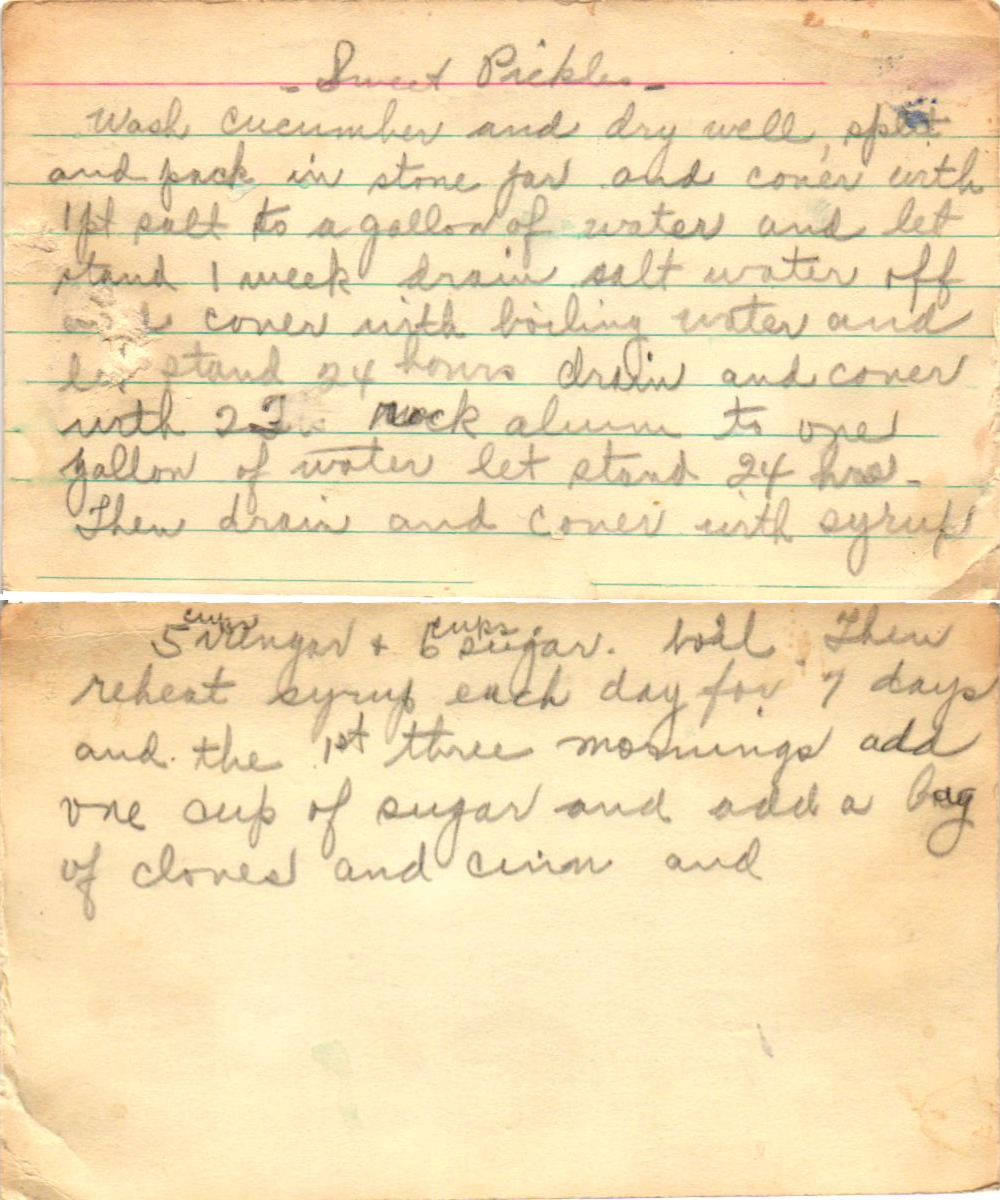 - Sweet Pickles -
Wash cucumber and dry well, split
and pack in stone jar and cover with
1 pt salt to a gallon of water and let
stand 1 week drain salt water off
and cover with boiling water and
let stand 24 hours drain and cover
with 2 rock alum to one
gallon of water let stand 24 hrs -
Then drain and cover with syrup
cups cups
5 vinegar + 6 sugar. boil. Then
reheat syrup each day for 7 days
and the 1st three mornings add
one cup of sugar and add a bag
of cloves and cinn and